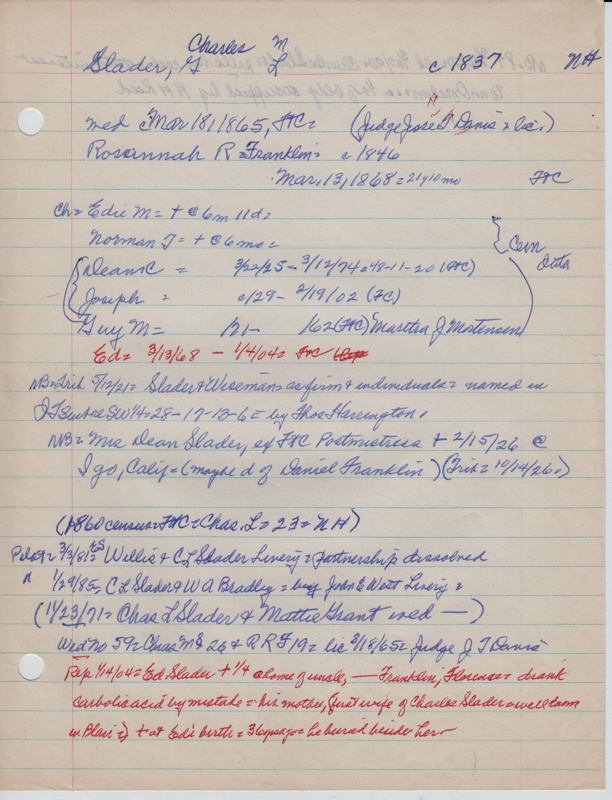 Charles M
Slader, G L c 1837 NH
Wed c Mar 18, 1865, FtC = (Judge Jose T Davis = lic.)
Rosannah R = Franklin = c 1846
Mar. 13, 1868 = 21y10mo FtC
Ch = Edie M = + @ 6m 11d =
Norman J = + @ 6mos = Cem
Deans C = 3/22/25 - 3/12/74 = 48-11-20 (FtC) data
Joseph = c/29 - 2/19/02 (FC)
Guy M = /62 (FtC) Martha J Mortensen
Ed = 3/13/68 - 1/4/04 = FtC
NB = Trib 5/12/21 = Slader & Wiseman = as firm & individuals = named in
SW 1/4 = 28-17-13-6 = by Thos Harrington.
NB = Mrs Dean Slader, ex FtC Postmistress + 2/15/26 @
Igo, Calif = (maybe d of Daniel Franklin) (Trib = 10/14/26 =)
(1860 census = FtC = Chas. L = 23 = NH)
Pilot = 3/3/81 = Willis & CL Slader Livery = partnership dissolved
" 1/29/85 = C L Slader & W A Bradley = buy John E West Livery =
(11/23/71 = Chas L Slader & Mattie Grant wed —)
Wed No 59 = Chas M S 26 & R R F 19 = lic 3/18/65 = Judge J T Davis
Rep 1/4/04 = Ed Slader + 1/4 @ home of uncle, — Franklin, Florence = drank
carbolic acid by mistake = his mother, (first wife of Charles Slader = well known
in Blair =) + at Ed's birth = 36 yrs ago = he buried beside her =